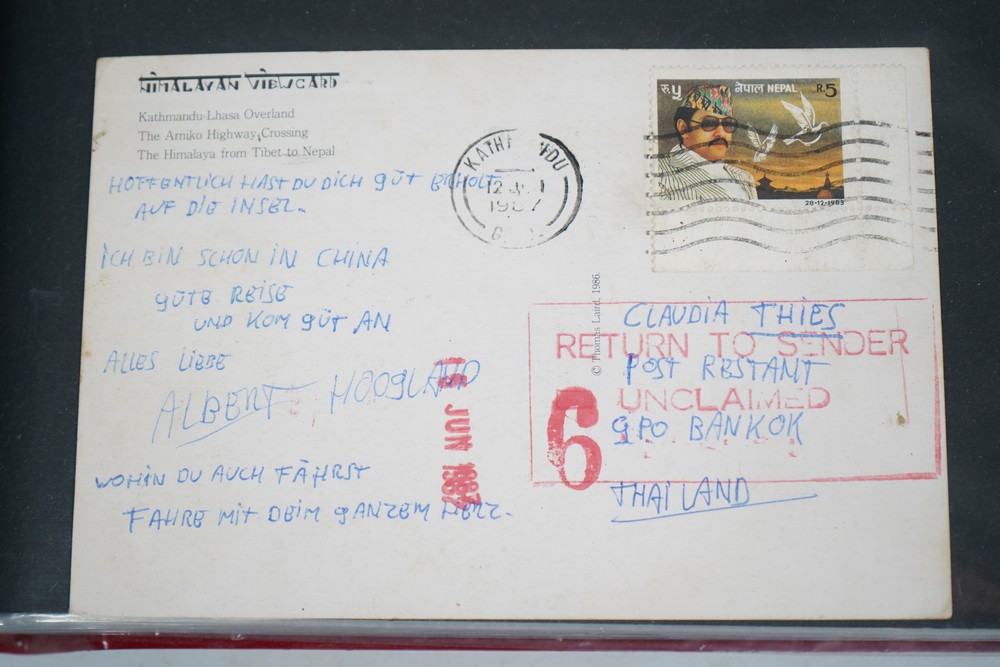 HIMALAYAN VIEWCARD
Kathmandu-Lhasa Overland
The Arniko Highway Crossing
The Himalaya from Tibet to Nepal
HOFFENTLICH HAST DU DICH GÜT ERHOLT
AUF DIE INSEL.
ICH BIN SCHON IN CHINA
GÜTE REISE
UND KOM GÜT AN
ALLES LIEBE
ALBERT HOOGLAND
WOHIN DU AUCH FÄHRST
FAHRE MIT DEIM GANZEM HERZ.
रु. ५
नेपाल NEPAL
R.5
28-12-1983
12
1987
© Thomas Laird, 1986.
CLAUDIA THIES
POST RESTANT
GPO BANKOK
THAILAND
RETURN TO SENDER
UNCLAIMED
6
JUN 1987